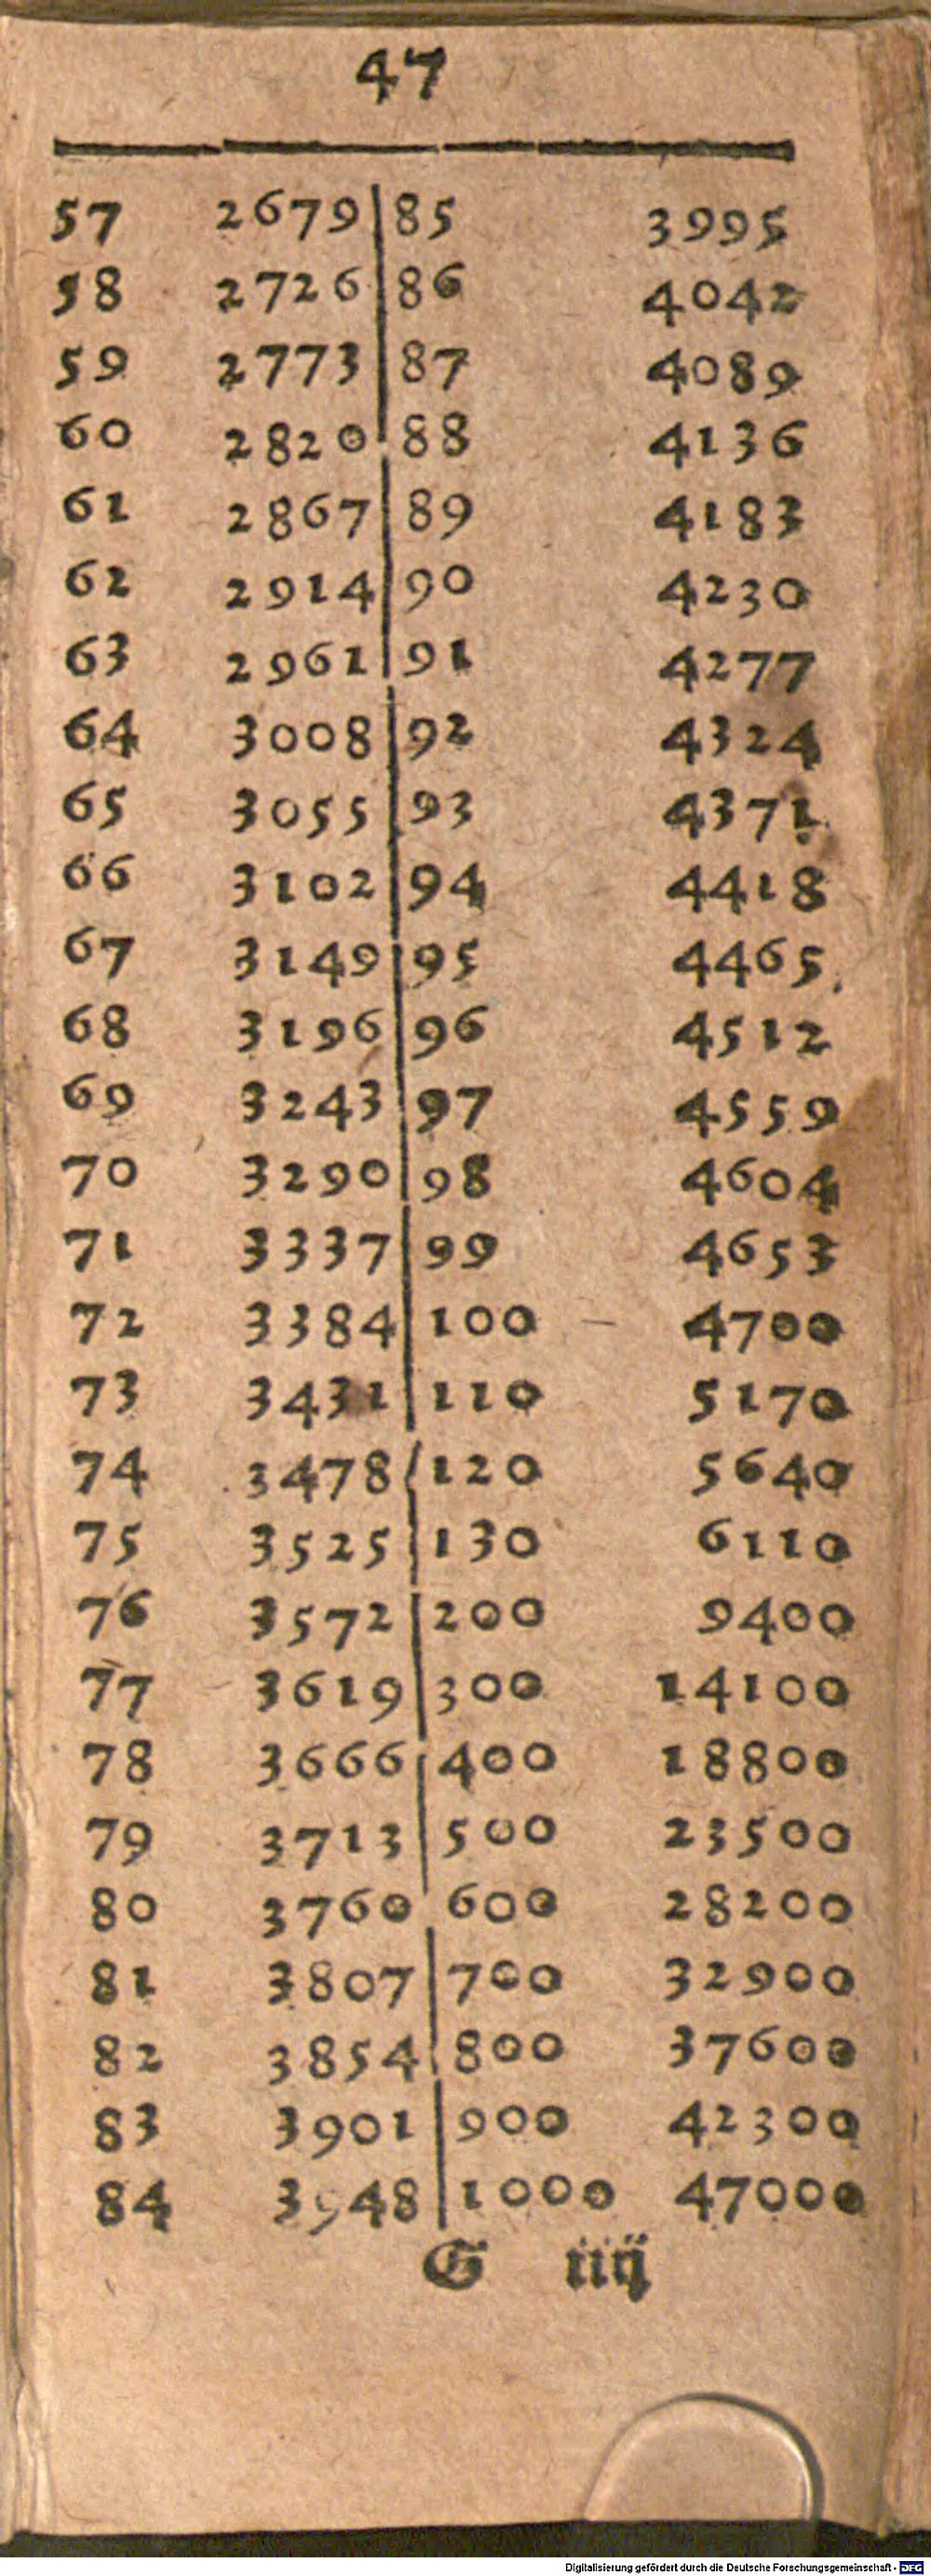 47
57 2679 85 3995
58 2726 86 4042
59 2773 87 4089
60 2820 88 4136
61 2867 89 4183
62 2914 90 4230
63 2961 91 4277
64 3008 92 4324
65 3055 93 4371
66 3102 94 4418
67 3149 95 4465
68 3196 96 4512
69 3243 97 4559
70 3290 98 4604
71 3337 99 4653
72 3384 100 4700
73 3431 110 5170
74 3478 120 5640
75 3525 130 6110
76 3572 200 9400
77 3619 300 14100
78 3666 400 18800
79 3713 500 23500
80 3760 600 28200
81 3807 700 32900
82 3854 800 37600
83 3901 900 42300
84 3948 1000 47000
G iiij
Digitalisierung gefördert durch die Deutsche Forschungsgemeinschaft - DFG